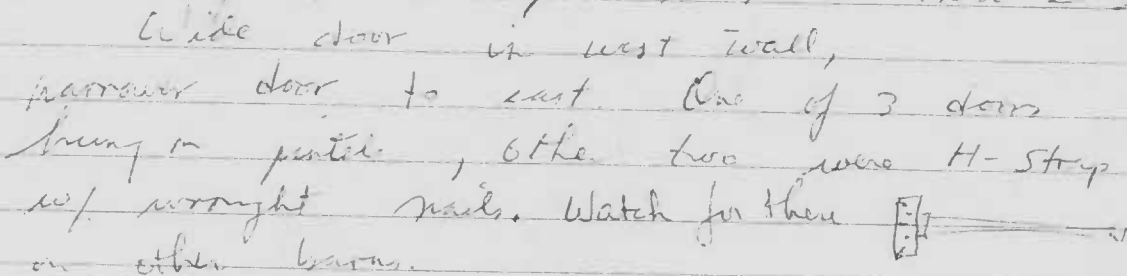 Wide door in west wall,
narrower door to east. One of 3 doors
hung on pintle, other two were H-Strap
w/ wrought nails. Watch for these
on other barns.